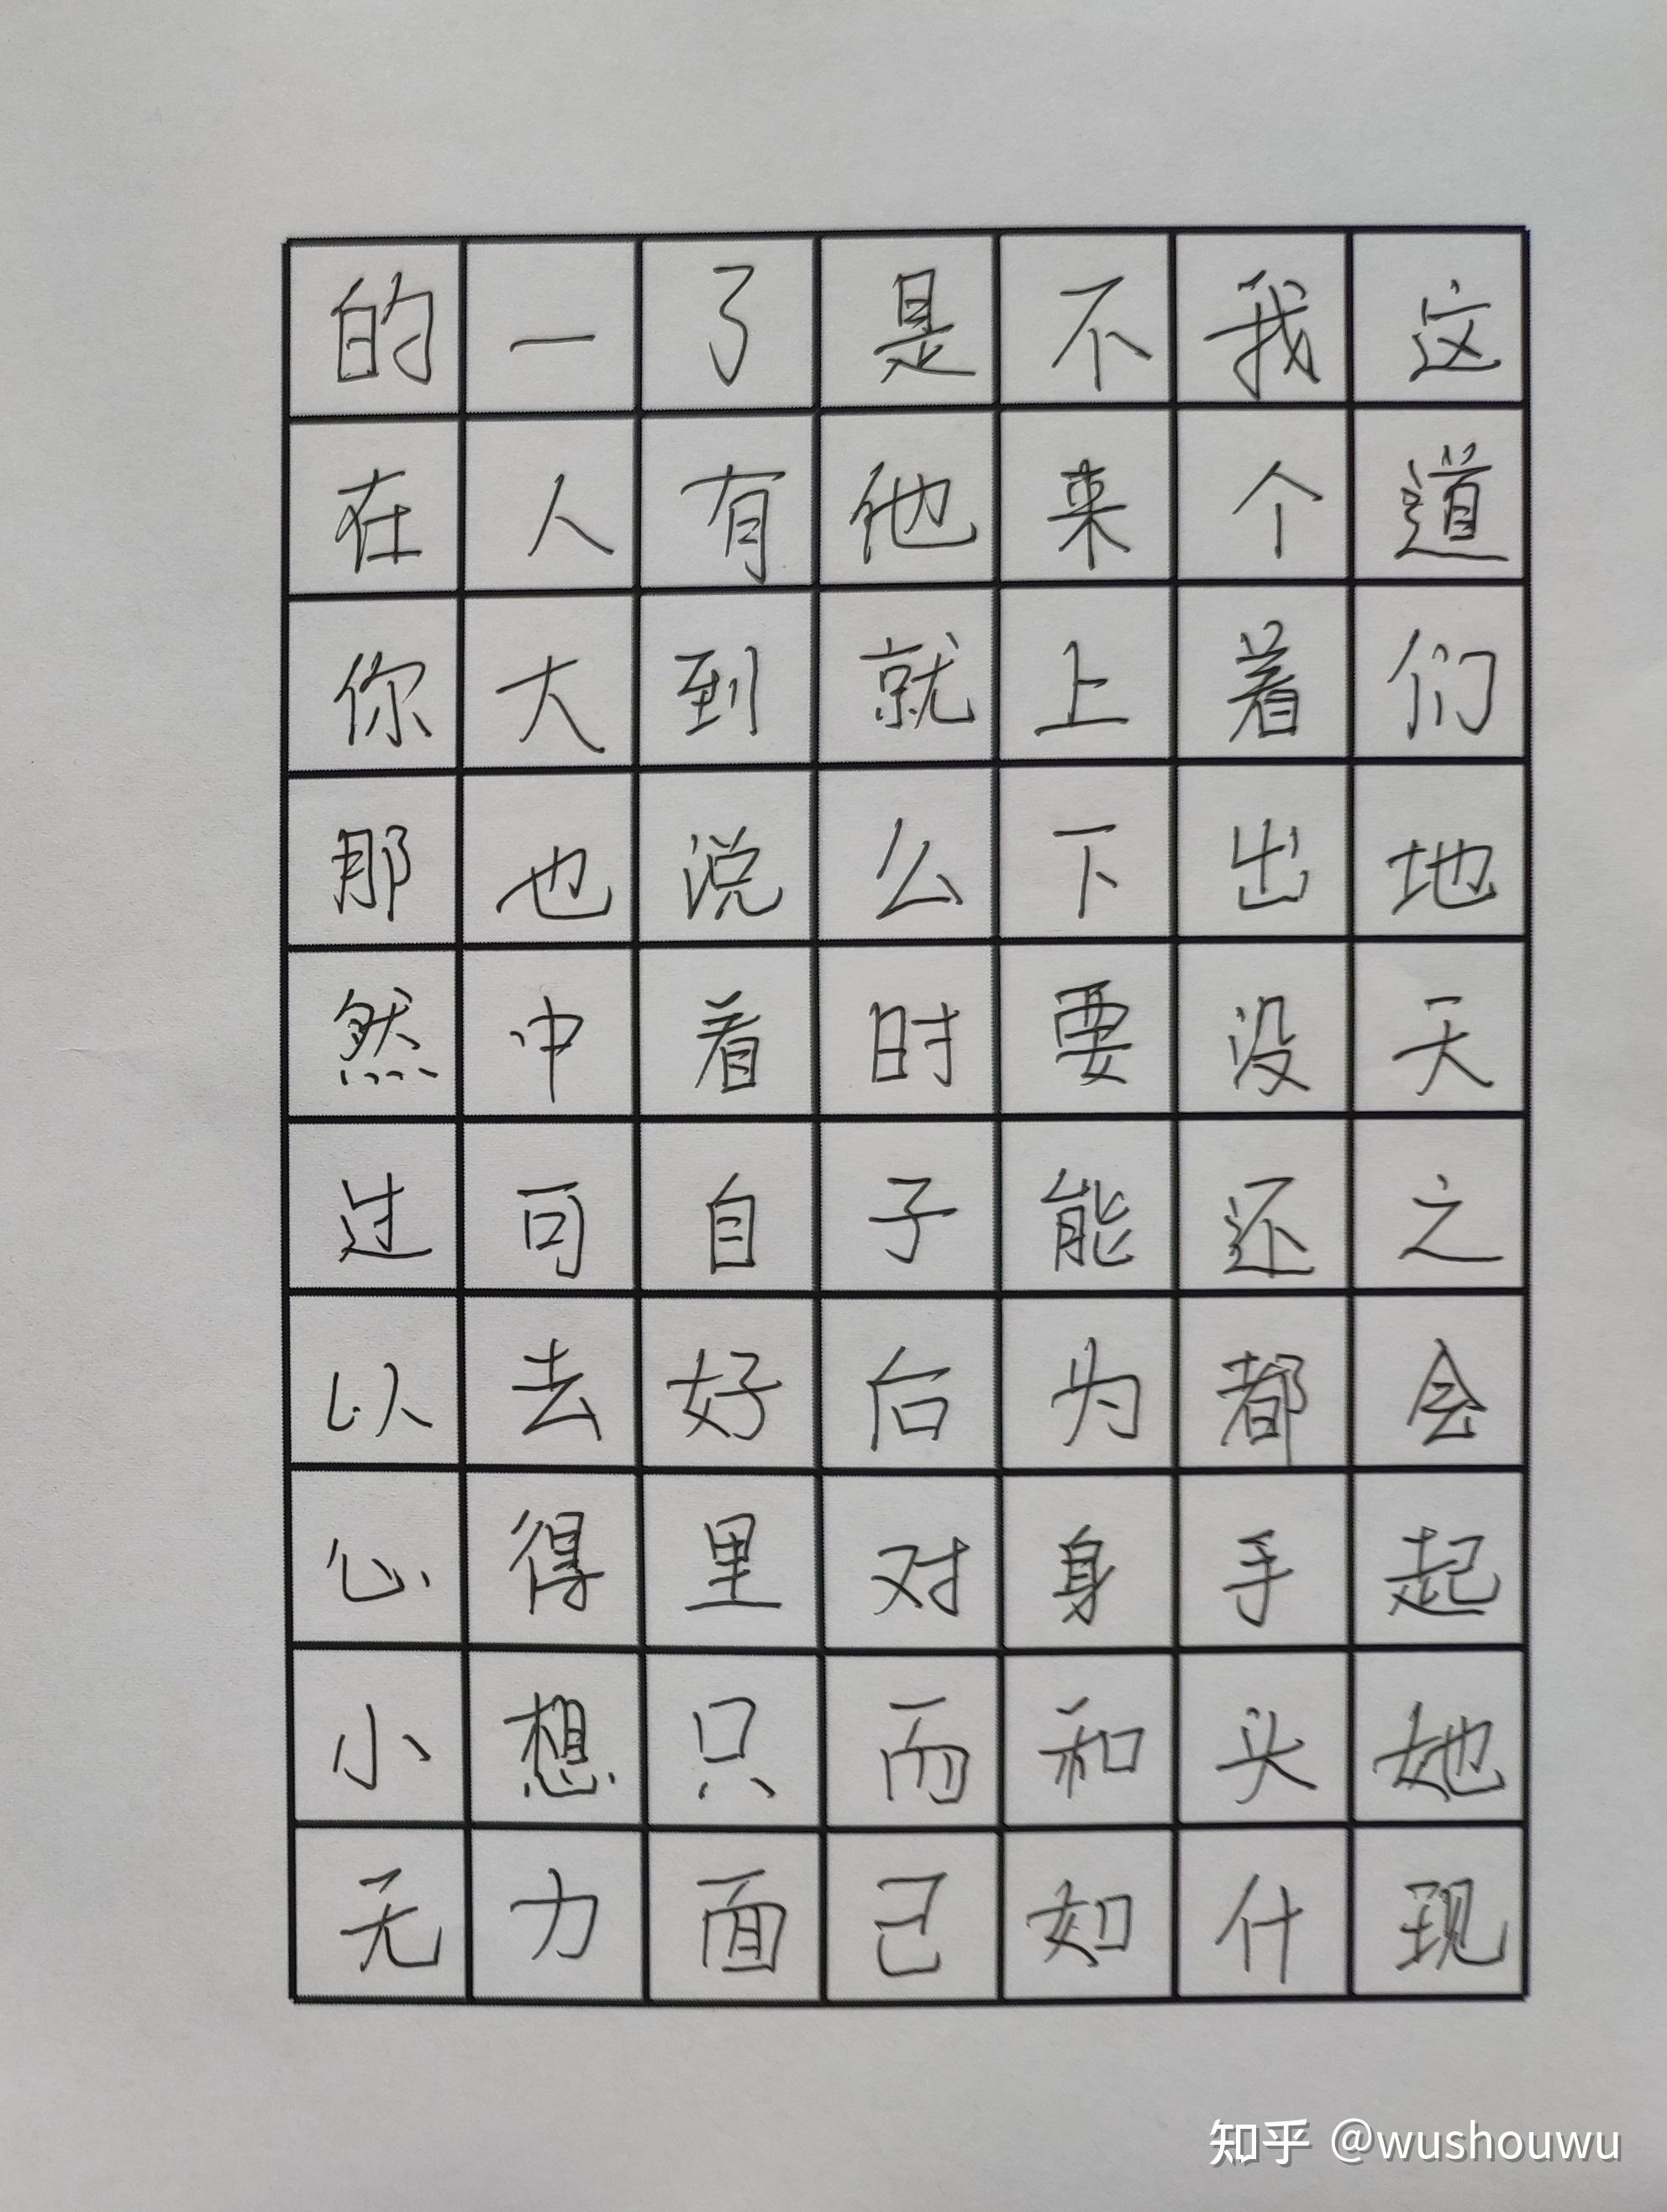 的一了是不我这
在人有他来个道
你大到就上着们
那也说么下出地
然中着时要没天
过可自子能还之
以去好后为都会
心得里对身手起
小想只而和头她
无力面己如什现
知乎 @wushouwu